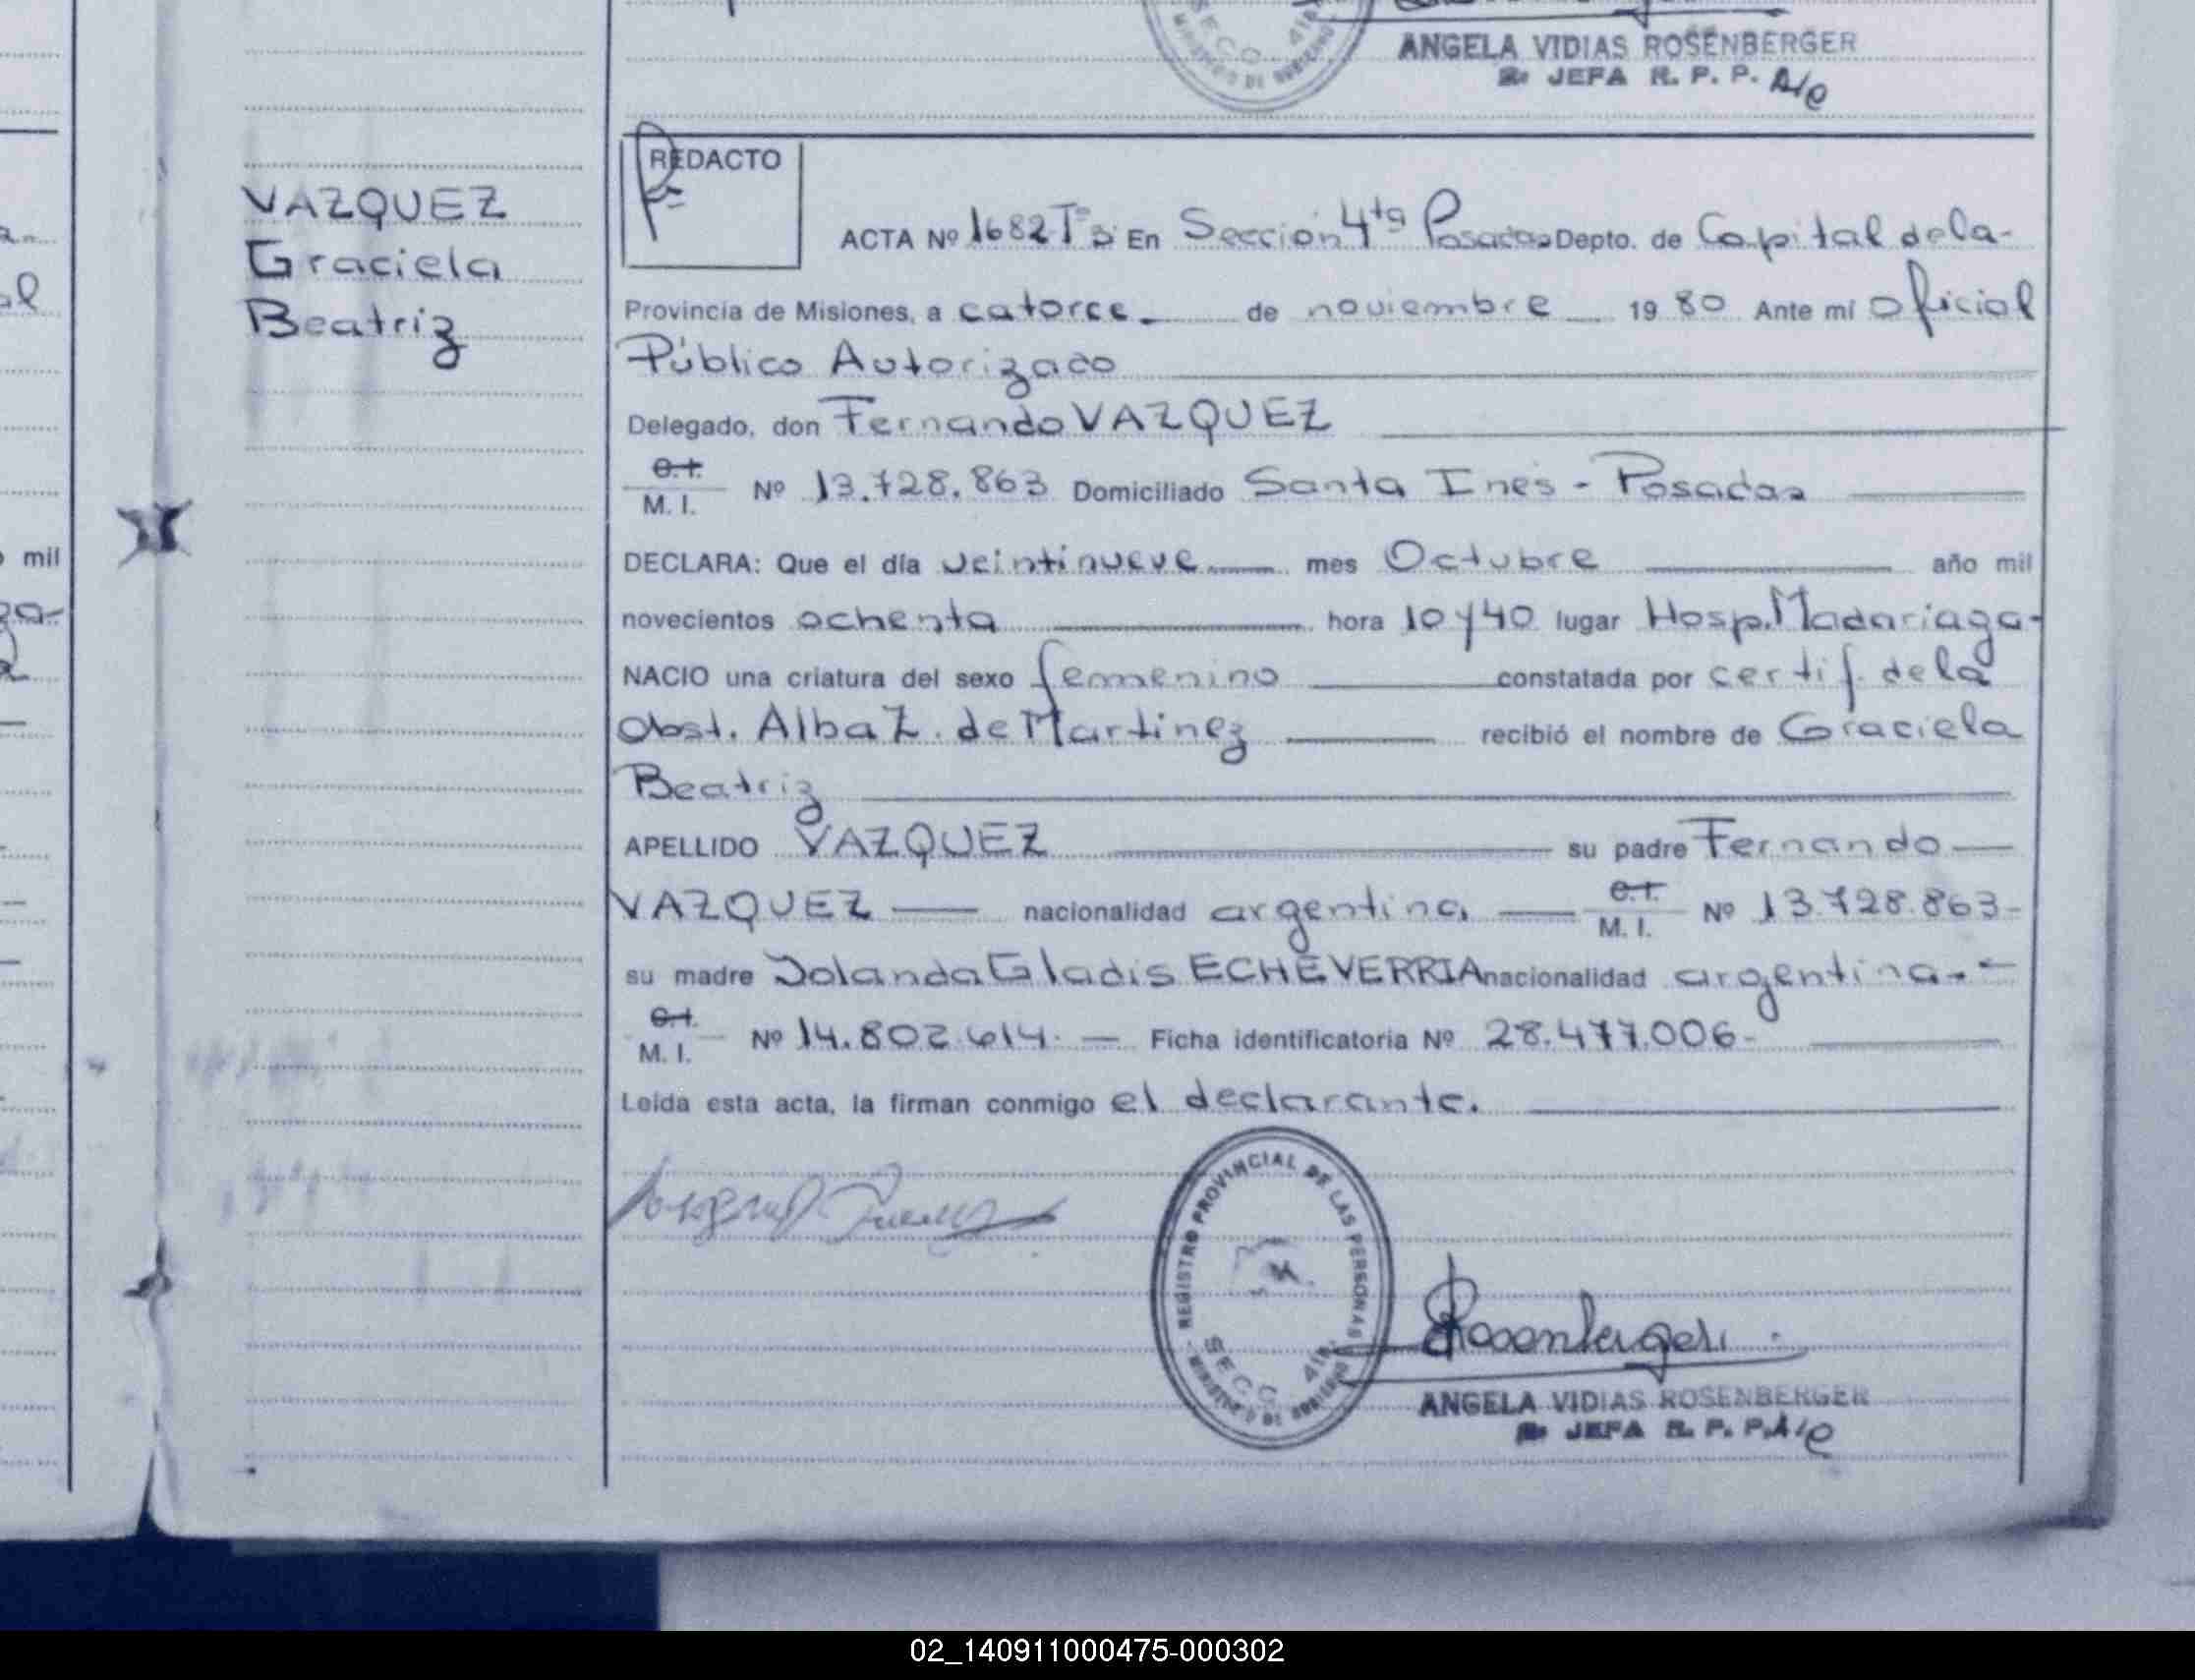 ANGELA VIDIAS ROSENBERGER
JEFA R. P. P. A/C
REDACTO
VAZQUEZ
Graciela
Beatriz
ACTA Nº 1682 Tº 3 En Sección 4ta Posadas Depto. de Capital de la-
Provincia de Misiones, a catorce de noviembre 19 80 Ante mí Oficial
Público Autorizado
Delegado, don Fernando VAZQUEZ
C.I.
M. I. Nº 13.728.863 Domiciliado Santa Inés - Posadas
DECLARA: Que el día veintinueve mes Octubre año mil
novecientos ochenta hora 10 y 40 lugar Hosp. Madariaga-
NACIO una criatura del sexo femenino constatada por certif. de la
Obst. Alba Z. de Martinez recibió el nombre de Graciela
Beatriz
APELLIDO VAZQUEZ su padre Fernando
VAZQUEZ nacionalidad argentina C.I.
M. I. Nº 13.728.863-
su madre Jolanda Gladis ECHEVERRIA nacionalidad argentina.-
C.I.
M. I. Nº 14.802.614. Ficha identificatoria Nº 28.477.006-
Leída esta acta, la firman conmigo el declarante.
REGISTRO PROVINCIAL DE LAS PERSONAS
SECC. 4ta.
MINISTERIO DE GOBIERNO
Rosenberger
ANGELA VIDIAS ROSENBERGER
JEFA R. P. P. A/C
mil
02_140911000475-000302